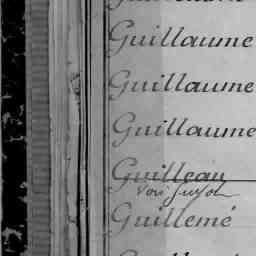 Guillaume
Guillaume
Guillaume
Guilleau
Voir Guyot
Guillemé